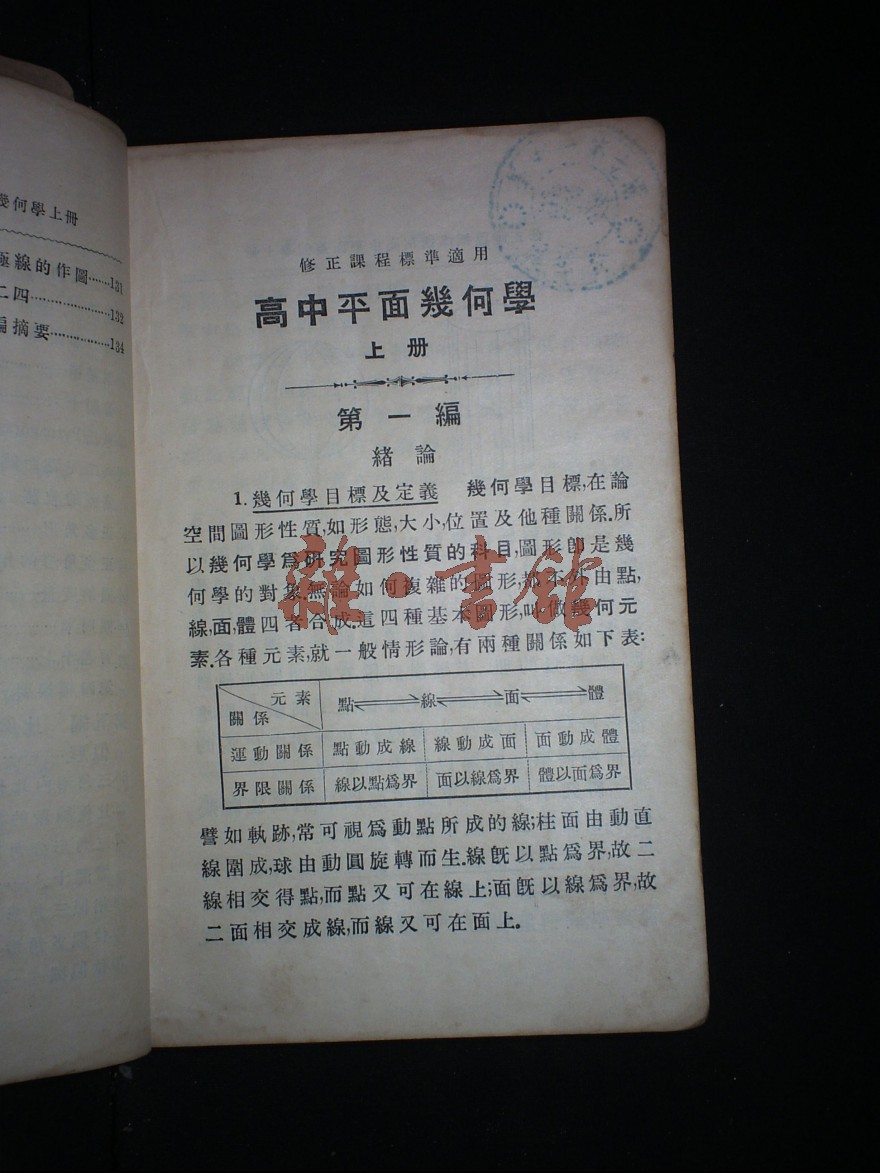 幾何學上冊
極線的作圖……131
二四…………132
編摘要…………134
修正課程標準適用
高中平面幾何學
上册
第一編
緒論
1. 幾何學目標及定義　幾何學目標,在論
空間圖形性質,如形態,大小,位置及他種關係.所
以幾何學爲研究圖形性質的科目,圖形卽是幾
何學的對象.無論如何複雜的圖形,都不外由點,
線,面,體四者合成.這四種基本圖形,叫做幾何元
素.各種元素,就一般情形論,有兩種關係如下表:
元素 關係 點 線 面 體
運動關係 點動成線 線動成面 面動成體
界限關係 線以點爲界 面以線爲界 體以面爲界
譬如軌跡,常可視爲動點所成的線;柱面由動直
線圍成,球由動圓旋轉而生.線旣以點爲界,故二
線相交得點,而點又可在線上;面旣以線爲界,故
二面相交成線,而線又可在面上.
雜·書館